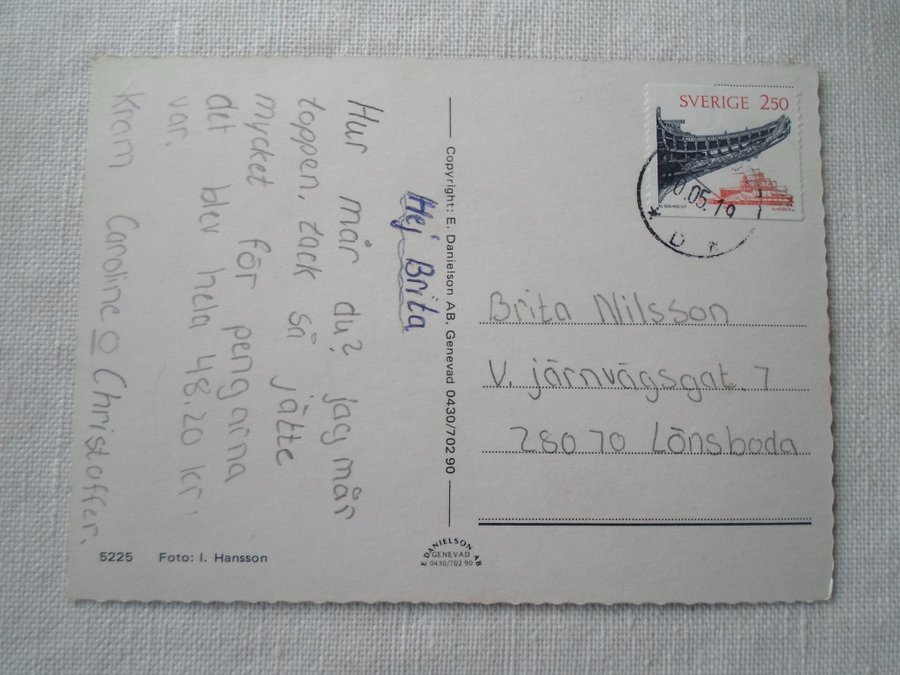 Hej Brita
Hur mår du? jag mår
toppen, tack så jätte
mycket för pengarna
det blev hela 48,20 kr
var.
Kram Caroline o Christoffer.
5225 Foto: I. Hansson
Copyright: E. Danielson AB, Genevad 0430/702 90
E DANIELSON AB
GENEVAD
0430/702 90
SVERIGE 250
0.05.19
Brita Nilsson
V. järnvägsgat. 7
280 70 Lönsboda